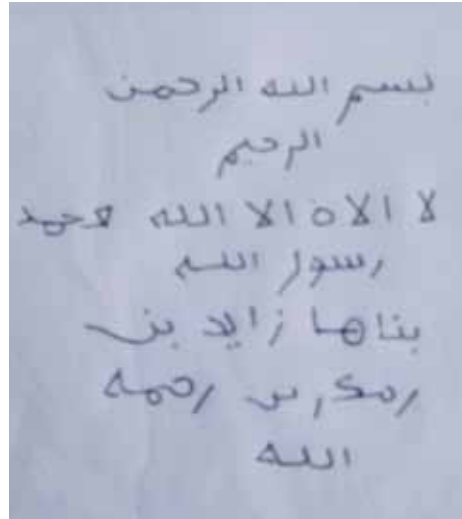 بسم الله الرحمن
الرحيم
لا الاه الا الله محمد
رسول الله
بناها زايد بن
بن رحمه
الله